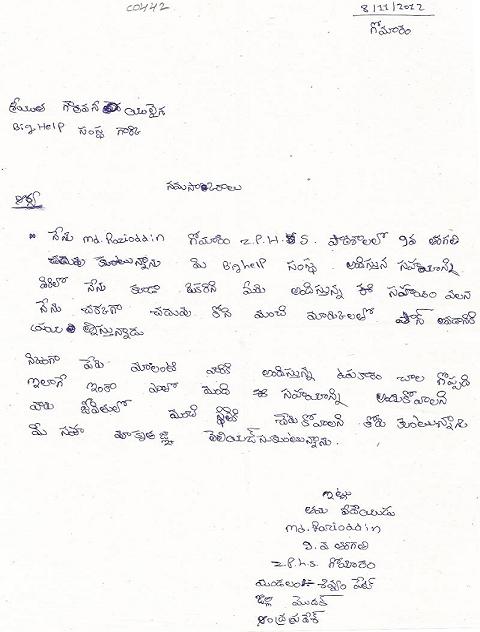 C0442
8/11/2012
గోమారం
శ్రీయుత గౌరవనీ యులైన
Big Help సంస్థ గారికి
నమస్కారాలు
ఆర్య
* నేను md. Razioddin గోమారం Z.P.H.S. పాఠశాలలో 9వ తరగతి
చదువు కుంటున్నాను. మీ Big help సంస్థ. అందిస్తున సహాయాన్ని
నేను కూడా ఒకరిని మీరు అందిస్తున్న ఈ సహాయం వలన
నేను చక్కగా చదువు కొని మంచి మార్కులలో పాస్ అవడానికి
నిజంగా మీరు మాలాంటి వారికి అందిస్తున్న ఉపకారం చాల గొప్పది
ఇలాగే ఇంకా ఎంతో మంది ఈ సహాయాన్ని అందుకోవాలని
వారు జీవితంలో మంచి స్థితికి చేరు కోవాలని కోరు కుంటున్నాను
మీ సహా కృతజ్ఞ తెలియచేసుకుంటున్నాను.
ఇట్లు
తమ విదేయుడు
Md. Razioddin
9. వ తరగతి
Z.P.h.s. గోమారం
మండలం శివ్వం పేట్
జిల్లా మెదక్
ఆంధ్రప్రదేశ్